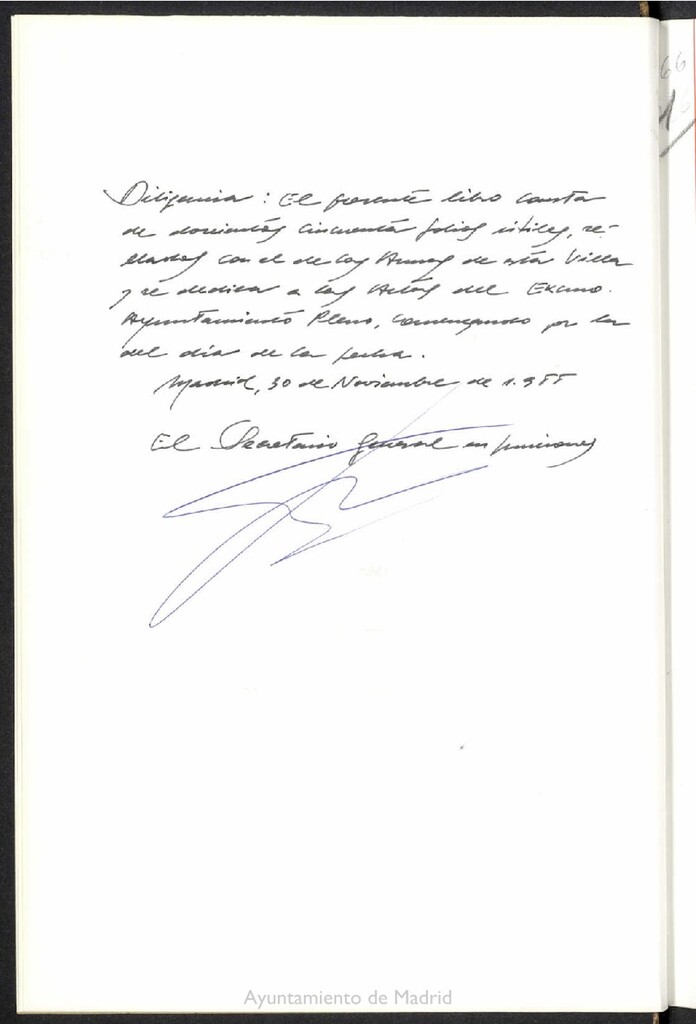 66
Diligencia : El presente libro consta
de doscientos cincuenta folios útiles, se-
llados con el de las Armas de esta Villa
y se dedica a las Actas del Excmo.
Ayuntamiento Pleno, comenzando por la
del día de la fecha.
Madrid, 30 de Noviembre de 1.9
El Secretario General en funciones
Ayuntamiento de Madrid